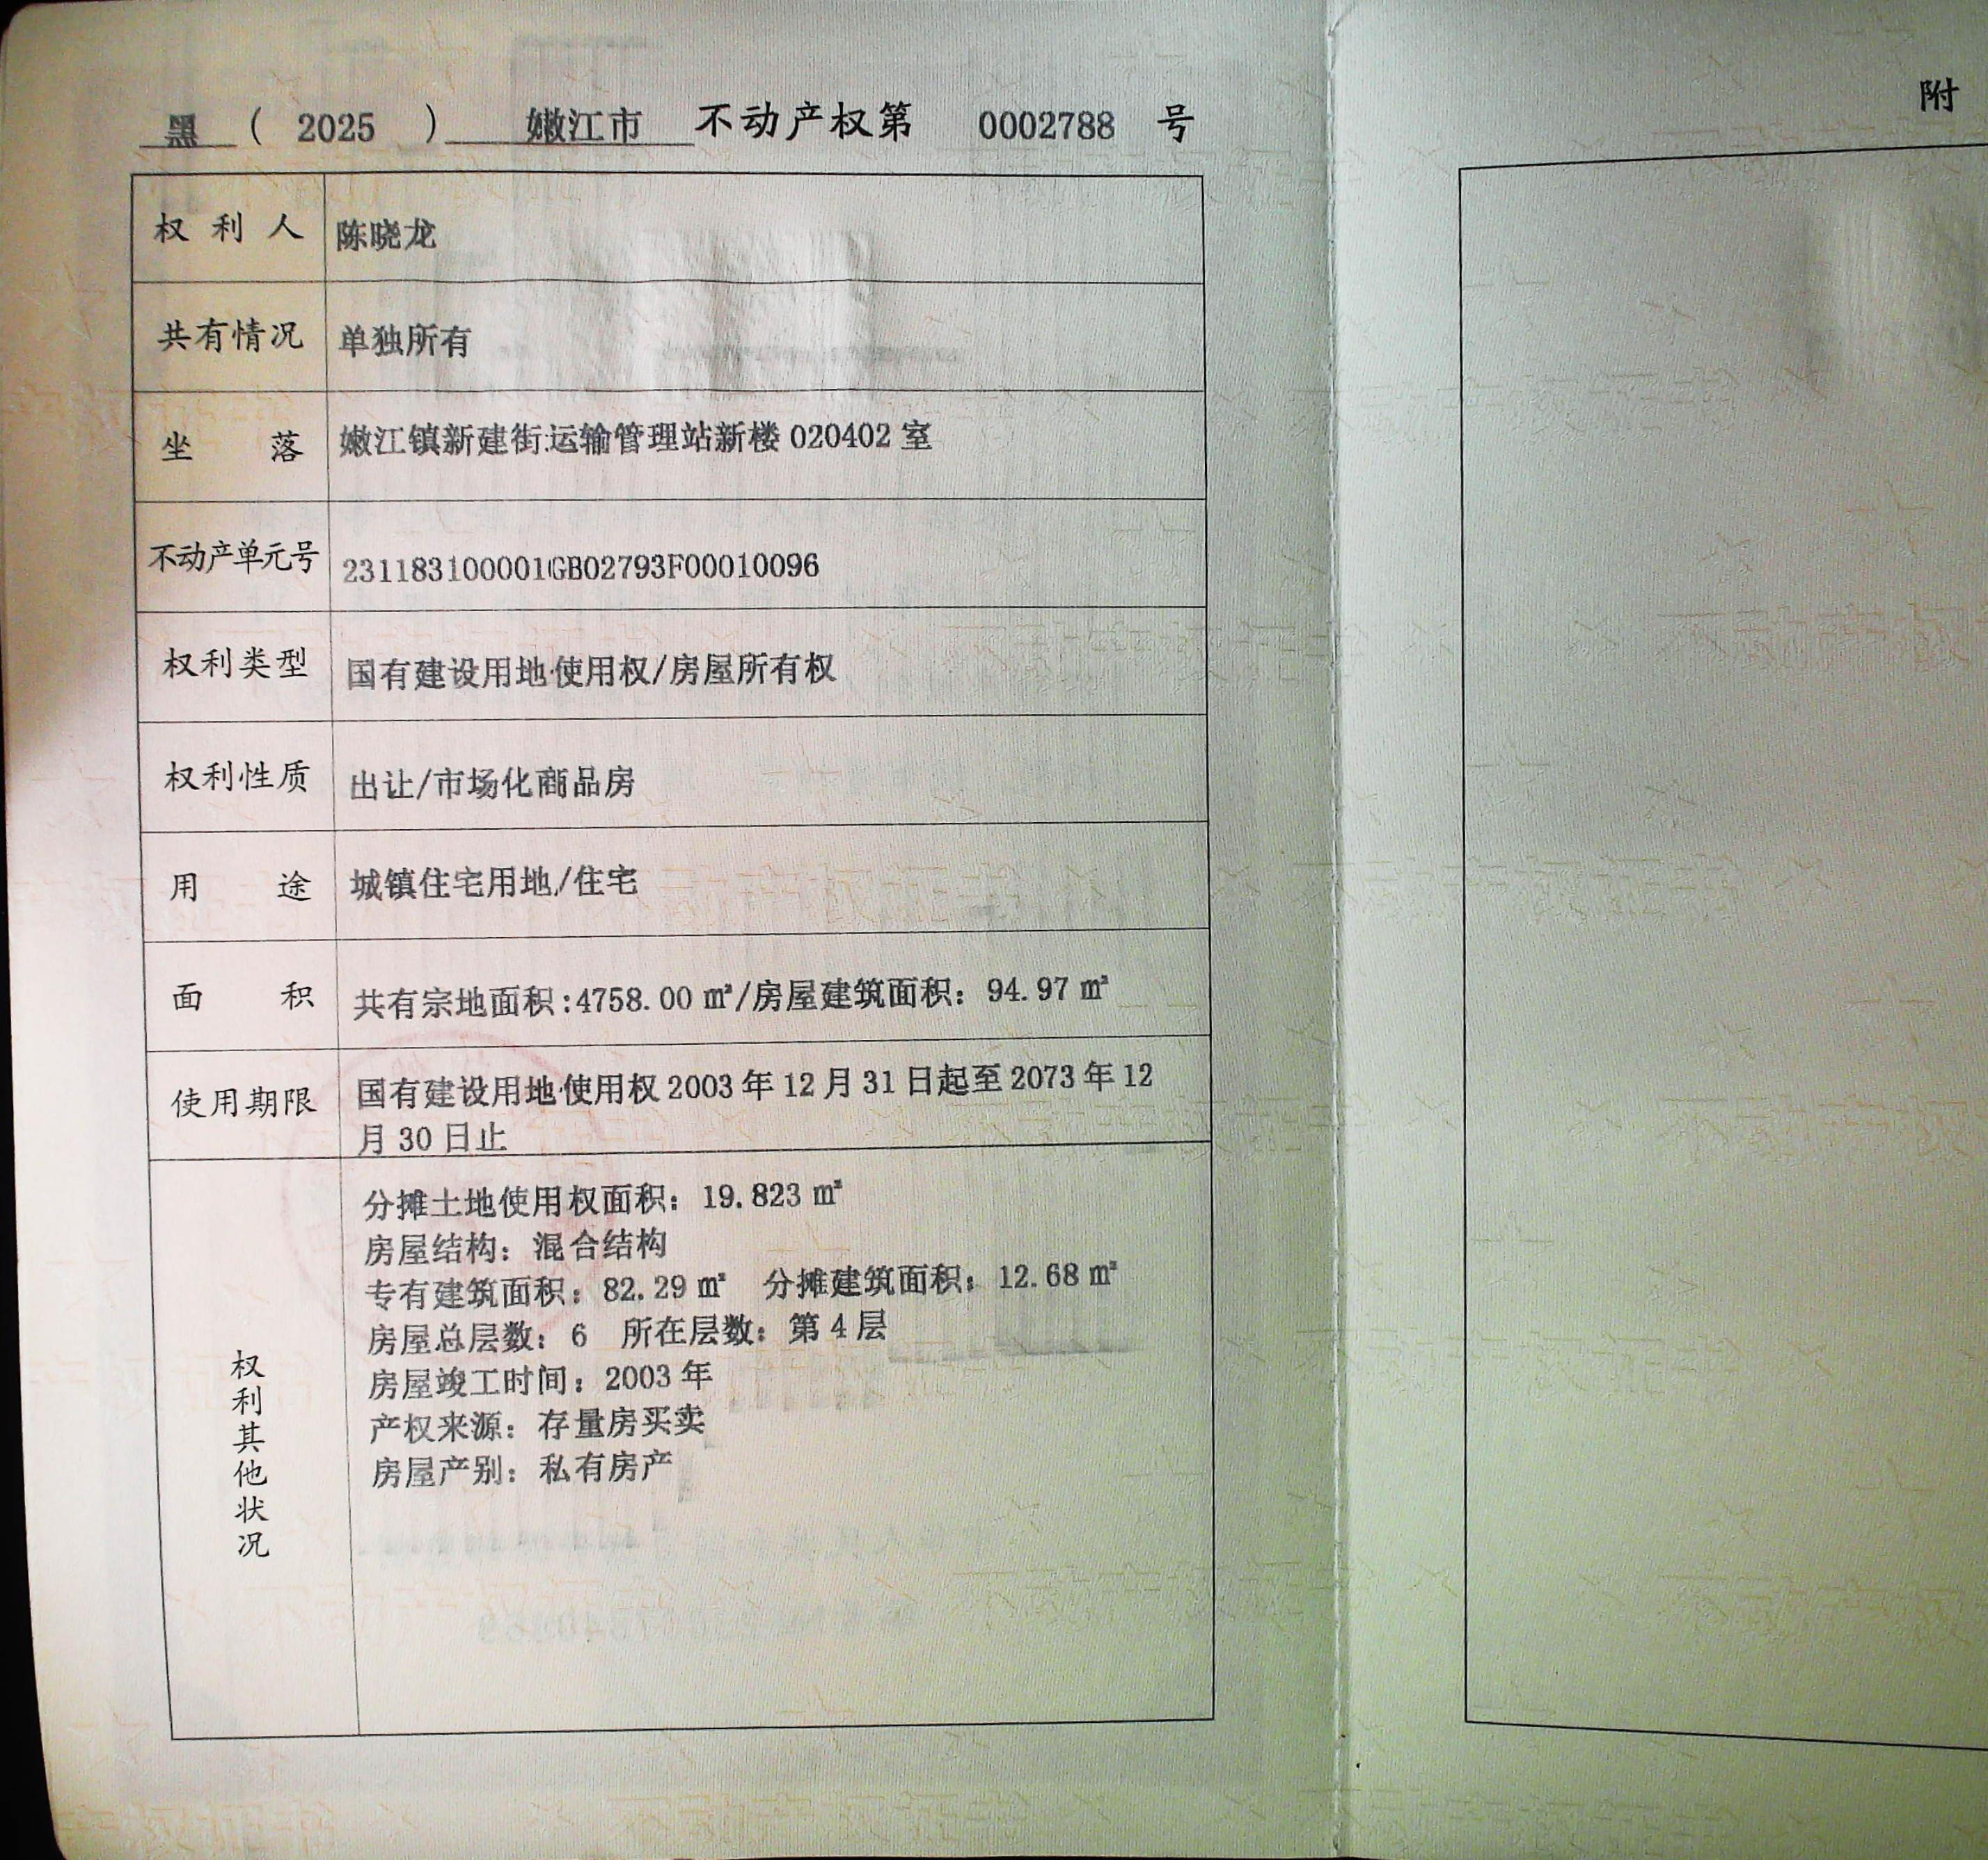 黑 ( 2025 ) 嫩江市 不动产权第 0002788 号
权利人 陈晓龙
共有情况 单独所有
坐落 嫩江镇新建街运输管理站新楼 020402 室
不动产单元号 231183100001GB02793F00010096
权利类型 国有建设用地使用权/房屋所有权
权利性质 出让/市场化商品房
用途 城镇住宅用地/住宅
面积 共有宗地面积:4758.00 ㎡/房屋建筑面积：94.97 ㎡
使用期限 国有建设用地使用权 2003 年 12 月 31 日起至 2073 年 12
月 30 日止
权利其他状况
分摊土地使用权面积：19.823 ㎡
房屋结构：混合结构
专有建筑面积：82.29 ㎡ 分摊建筑面积：12.68 ㎡
房屋总层数：6 所在层数：第 4 层
房屋竣工时间：2003 年
产权来源：存量房买卖
房屋产别：私有房产
附